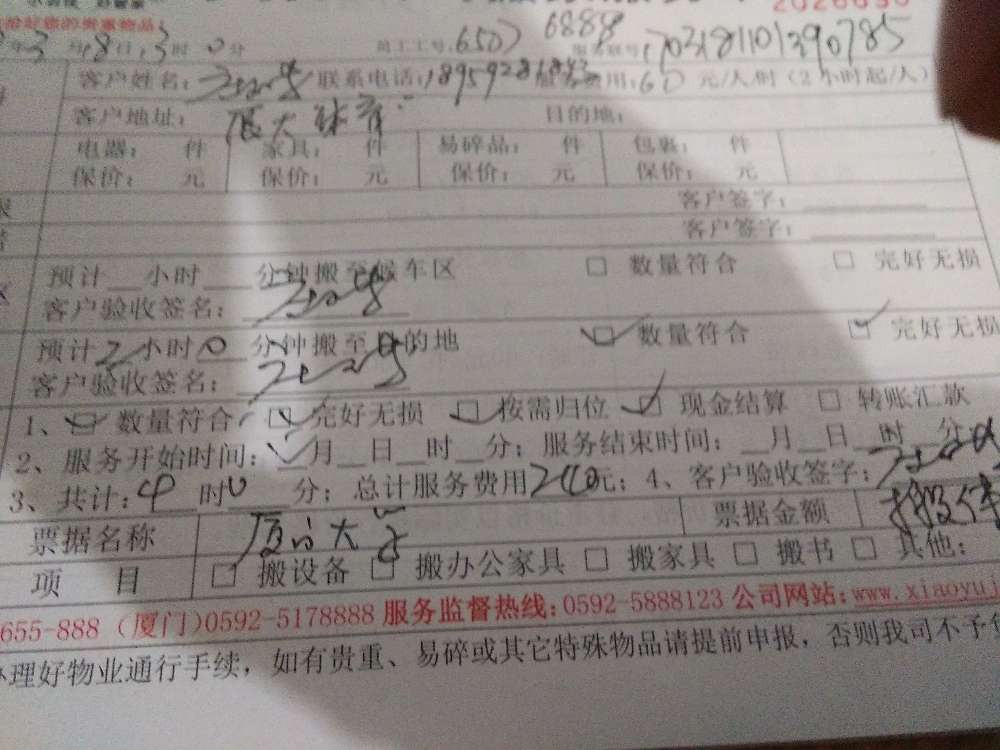 年3月18日,3时0分 员工工号:6507 6888 703181101390785
客户姓名: 联系电话: 费用:60元/人/时(2小时起/人)
客户地址: 厦大 目的地:
电器: 件 家具: 件 易碎品: 件 包裹: 件
保价: 元 保价: 元 保价: 元 保价: 元
客户签字:
客户签字:
预计 小时 分钟搬至候车区 □ 数量符合 □ 完好无损
客户验收签名:
预计2小时0分钟搬至目的地 □ 数量符合 □ 完好无损
客户验收签名:
1、□ 数量符合 □ 完好无损 □ 按需归位 □ 现金结算 □ 转账汇款
2、服务开始时间: 月 日 时 分;服务结束时间: 月 日 时 分;
3、共计:4时0分;总计服务费用240元;4、客户验收签字:
票据名称 厦门大学 票据金额
项 目 □ 搬设备 □ 搬办公家具 □ 搬家具 □ 搬书 □ 其他:
655-888 (厦门)0592-5178888 服务监督热线:0592-5888123 公司网站:www.xiaoyuj
理好物业通行手续,如有贵重、易碎或其它特殊物品请提前申报,否则我司不予